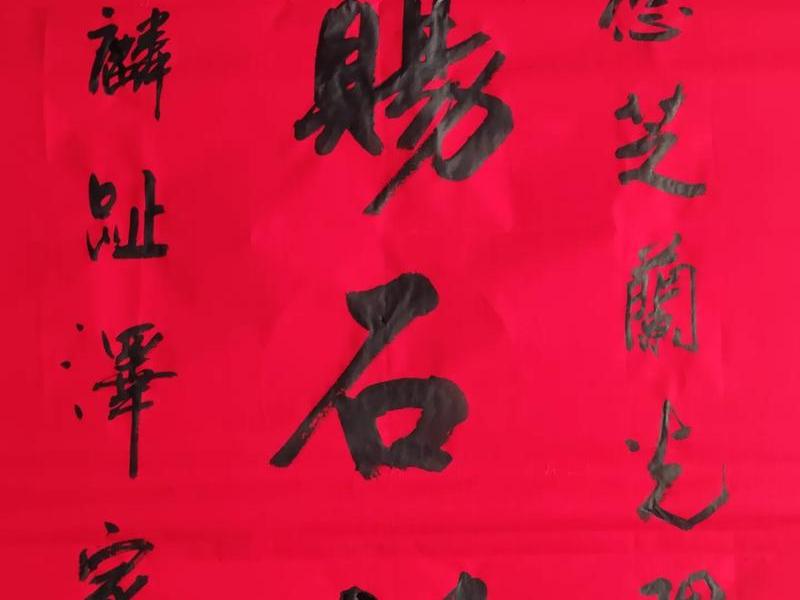 芝蘭光
賜石
麟趾澤家